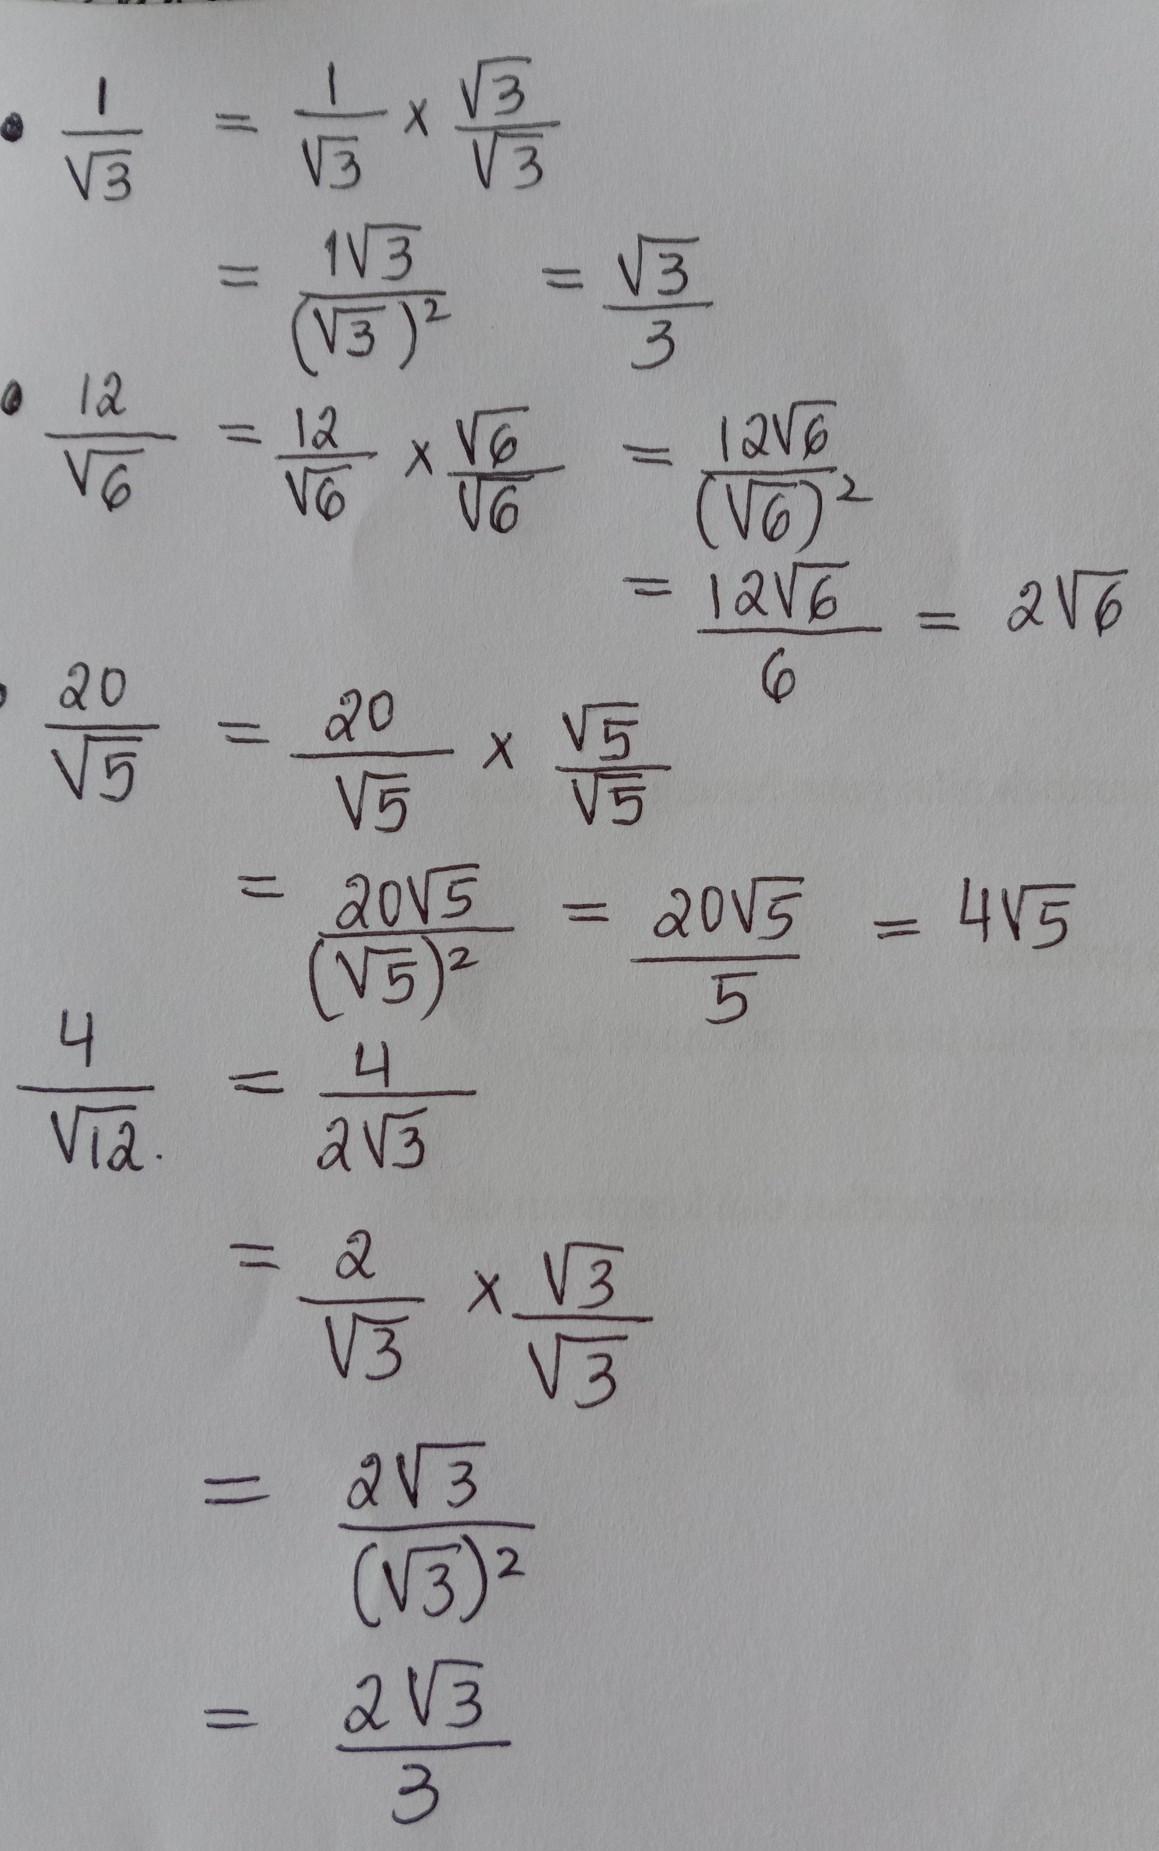 • 1/√3 = 1/√3 × √3/√3
= 1√3/(√3)² = √3/3
• 12/√6 = 12/√6 × √6/√6 = 12√6/(√6)²
= 12√6/6 = 2√6
• 20/√5 = 20/√5 × √5/√5
= 20√5/(√5)² = 20√5/5 = 4√5
4/√12. = 4/2√3
= 2/√3 × √3/√3
= 2√3/(√3)²
= 2√3/3